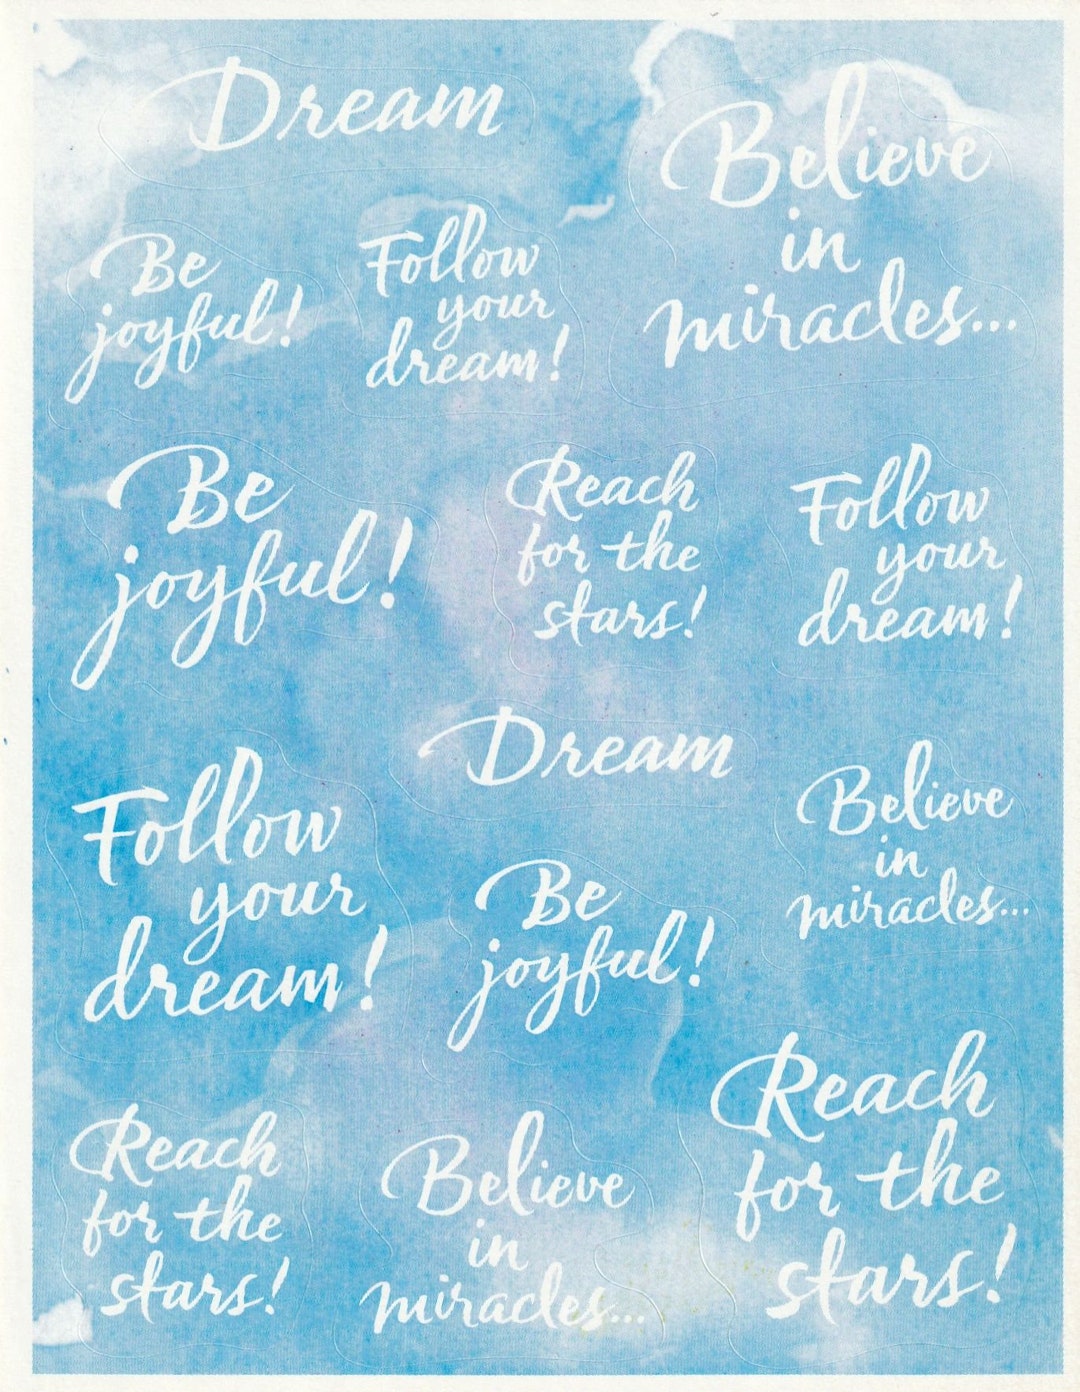 Dream
Believe
in
miracles...
Be
joyful!
Follow
your
dream!
Be
joyful!
Reach
for the
stars!
Follow
your
dream!
Dream
Follow
your
dream!
Believe
in
miracles...
Be
joyful!
Reach
for the
stars!
Believe
in
miracles...
Reach
for the
stars!